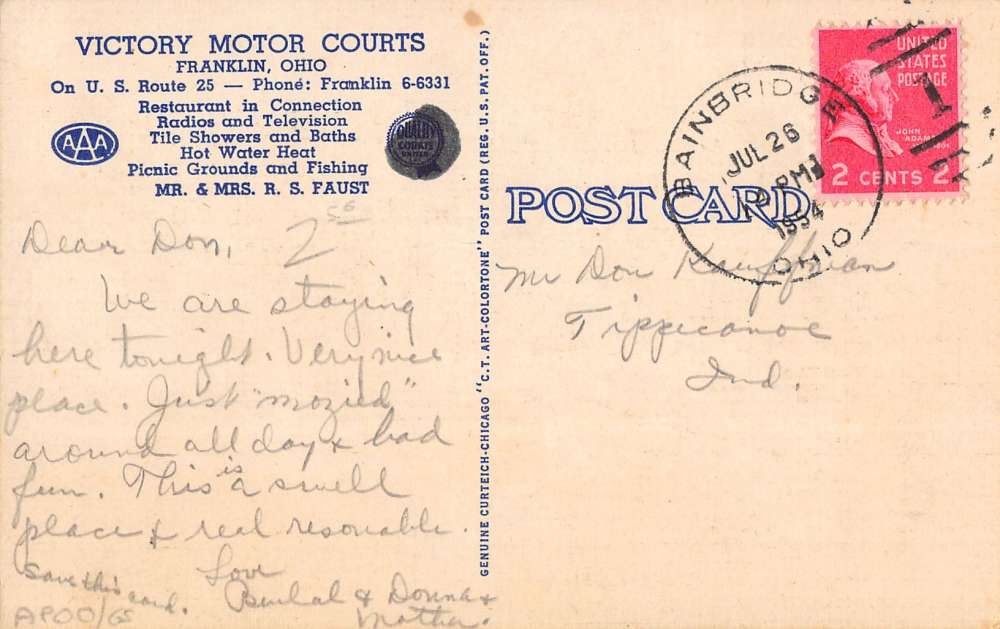 VICTORY MOTOR COURTS
FRANKLIN, OHIO
On U. S. Route 25 — Phone: Franklin 6-6331
Restaurant in Connection
Radios and Television
Tile Showers and Baths
Hot Water Heat
Picnic Grounds and Fishing
MR. & MRS. R. S. FAUST
AAA
QUALITY
COURTS
UNITED
Dear Don,
2 50
We are staying
here tonight. Very nice
place. Just "mozied"
around all day & had
fun. This is a swell
place & real resonable.
Love
Save this
card.
& Donna &
Mother.
APOO/65
GENUINE CURTEICH-CHICAGO "C.T. ART-COLORTONE" POST CARD (REG. U.S. PAT. OFF.)
POST CARD
BAINBRIDGE
JUL 26
PM
1954
OHIO
UNITED
STATES
POSTAGE
1
JOHN
ADAMS
2 CENTS 2
Mr Don Kauffman
Tippecanoe
Ind.